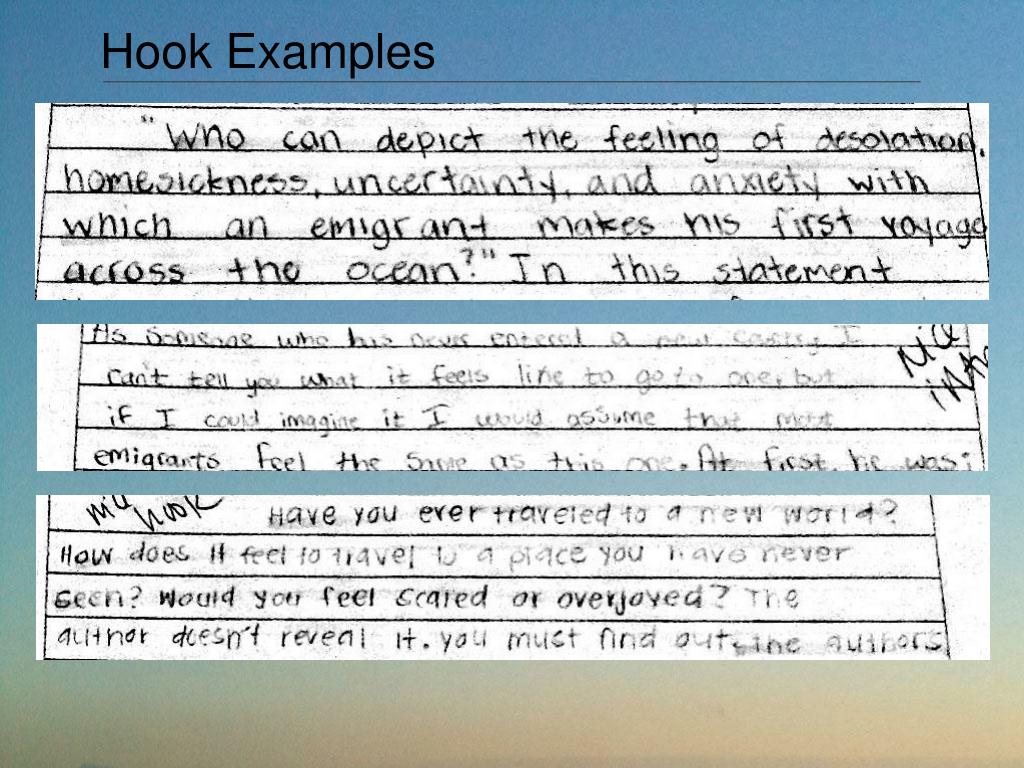 Hook Examples
"Who can depict the feeling of desolation,
homesickness, uncertainty, and anxiety with
which an emigrant makes his first voyage
across the ocean?" In this statement
As someone who has never entered a new I
can't tell you what it feels like to go to one, but
if I could imagine it I would assume that most
emigrants feel the same as this one. At first, he was
nice
hook
Have you ever traveled to a new world?
How does it feel to travel to a place you have never
seen? Would you feel scared or overjoyed? The
author doesn't reveal it. you must find out, the authors